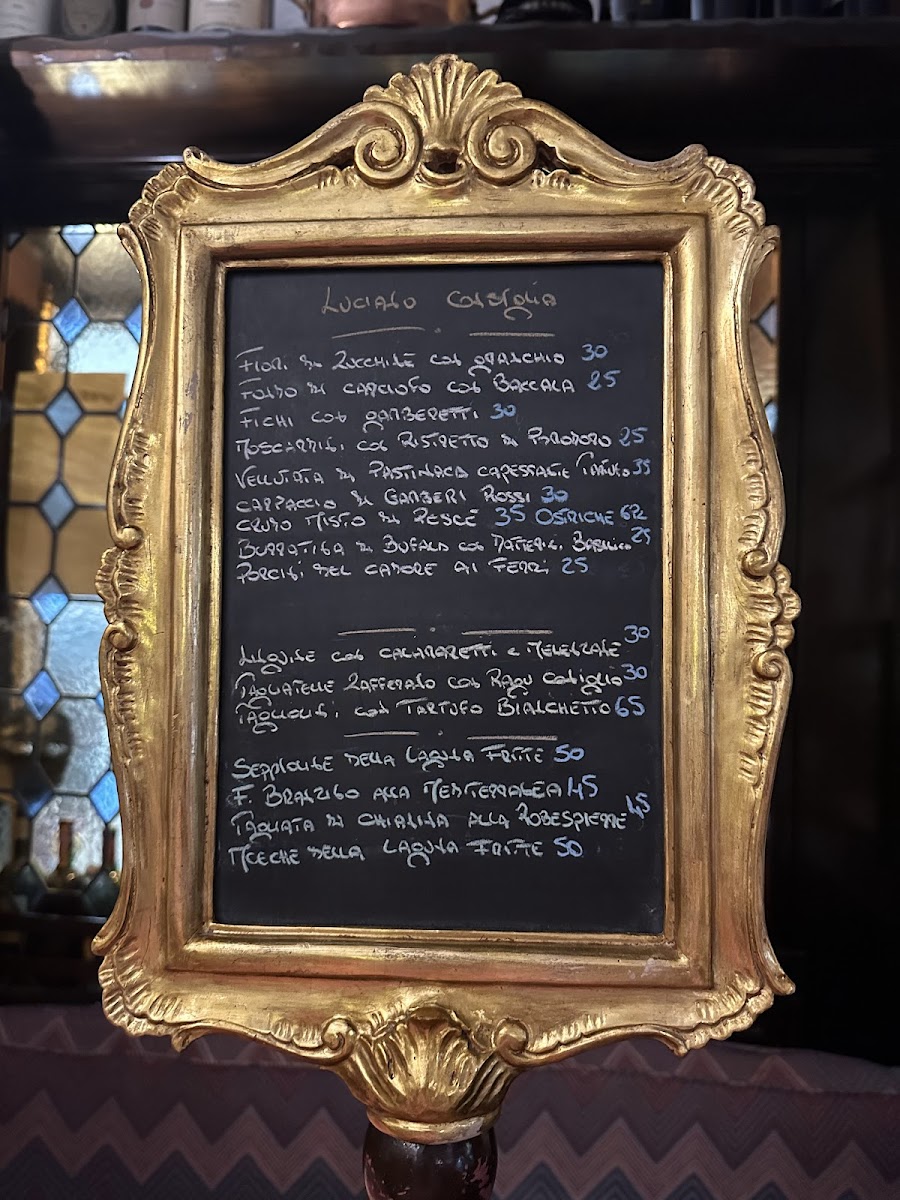 LUCIANO CONSIGLIA
FIORI DI ZUCCHINE CON GRANCHIO 30
FONDO DI CARCIOFO CON BACCALA 25
FICHI CON GAMBERETTI 30
MOSCARDINI CON RISTRETTO DI POMODORO 25
VELLUTATA DI PASTINACA CAPESANTE TARTUFO 35
CARPACCIO DI GAMBERI ROSSI 30
CRUDO MISTO DI PESCE 35 OSTRICHE 6PZ
BURRATINA DI BUFALA CON DATTERINI BASILICO 25
PORCINI DEL CADORE AI FERRI 25
LINGUINE CON CALAMARETTI E MELENZANE 30
TAGLIATELLE ZAFFERANO CON RAGU CONIGLIO 30
TAGLIOLINI CON TARTUFO BIANCHETTO 65
SEPPIOLINE DELLA LAGUNA FRITTE 50
F. BRANZINO ALLA MEDITERRANEA 45
TAGLIATA DI CHIANINA ALLA ROBESPIERRE 45
MOECHE DELLA LAGUNA FRITTE 50